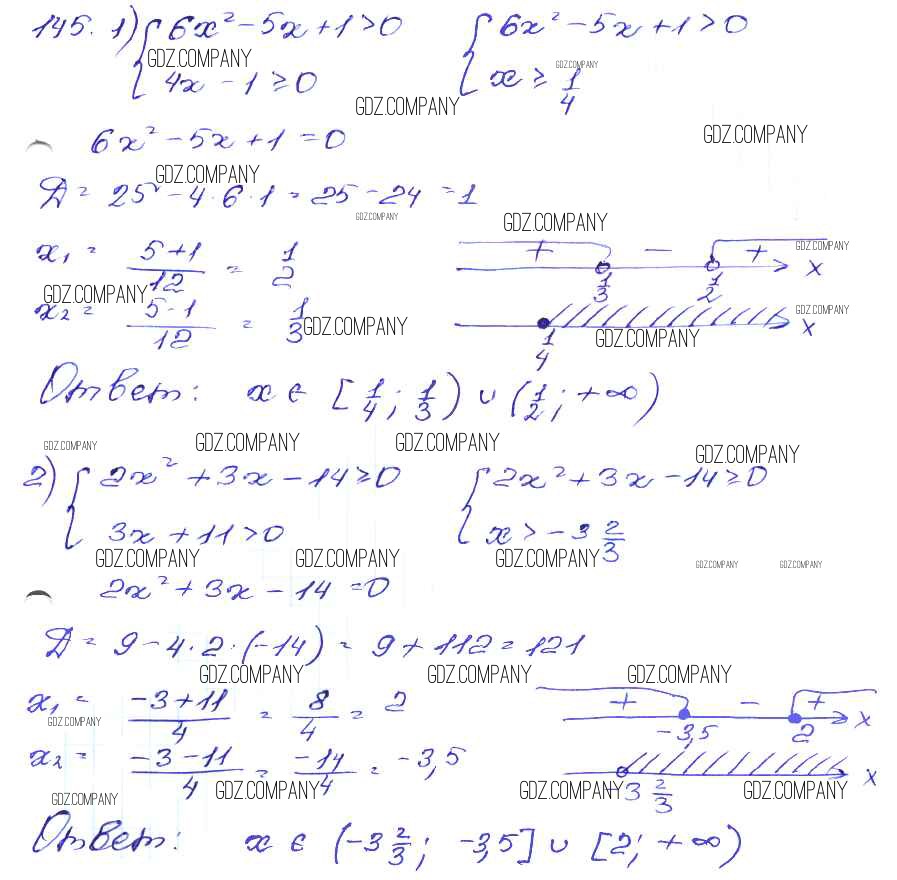 145. 1) { 6x² − 5x + 1 > 0 { 6x² − 5x + 1 > 0
GDZ.COMPANY GDZ.COMPANY
4x − 1 ≥ 0 x ≥ 1/4
GDZ.COMPANY
6x² − 5x + 1 = 0 GDZ.COMPANY
GDZ.COMPANY
Д = 25 − 4·6·1 = 25 − 24 = 1
GDZ.COMPANY GDZ.COMPANY
x₁ = (5+1)/12 = 1/2 + − + GDZ.COMPANY
1/3 1/2 x
GDZ.COMPANY
x₂ = (5−1)/12 = 1/3 GDZ.COMPANY GDZ.COMPANY
GDZ.COMPANY x
1/4
Ответ: x ∈ [1/4; 1/3) ∪ (1/2; +∞)
GDZ.COMPANY GDZ.COMPANY GDZ.COMPANY GDZ.COMPANY
2) { 2x² + 3x − 14 ≥ 0 { 2x² + 3x − 14 ≥ 0
3x + 11 > 0 x > −3 2/3
GDZ.COMPANY GDZ.COMPANY GDZ.COMPANY GDZ.COMPANY GDZ.COMPANY
2x² + 3x − 14 = 0
Д = 9 − 4·2·(−14) = 9 + 112 = 121
GDZ.COMPANY GDZ.COMPANY GDZ.COMPANY
x₁ = (−3+11)/4 = 8/4 = 2 + − +
GDZ.COMPANY −3,5 2 x
x₂ = (−3−11)/4 = −14/4 = −3,5
x
GDZ.COMPANY GDZ.COMPANY GDZ.COMPANY −3 2/3 GDZ.COMPANY
Ответ: x ∈ (−3 2/3; −3,5] ∪ [2; +∞)